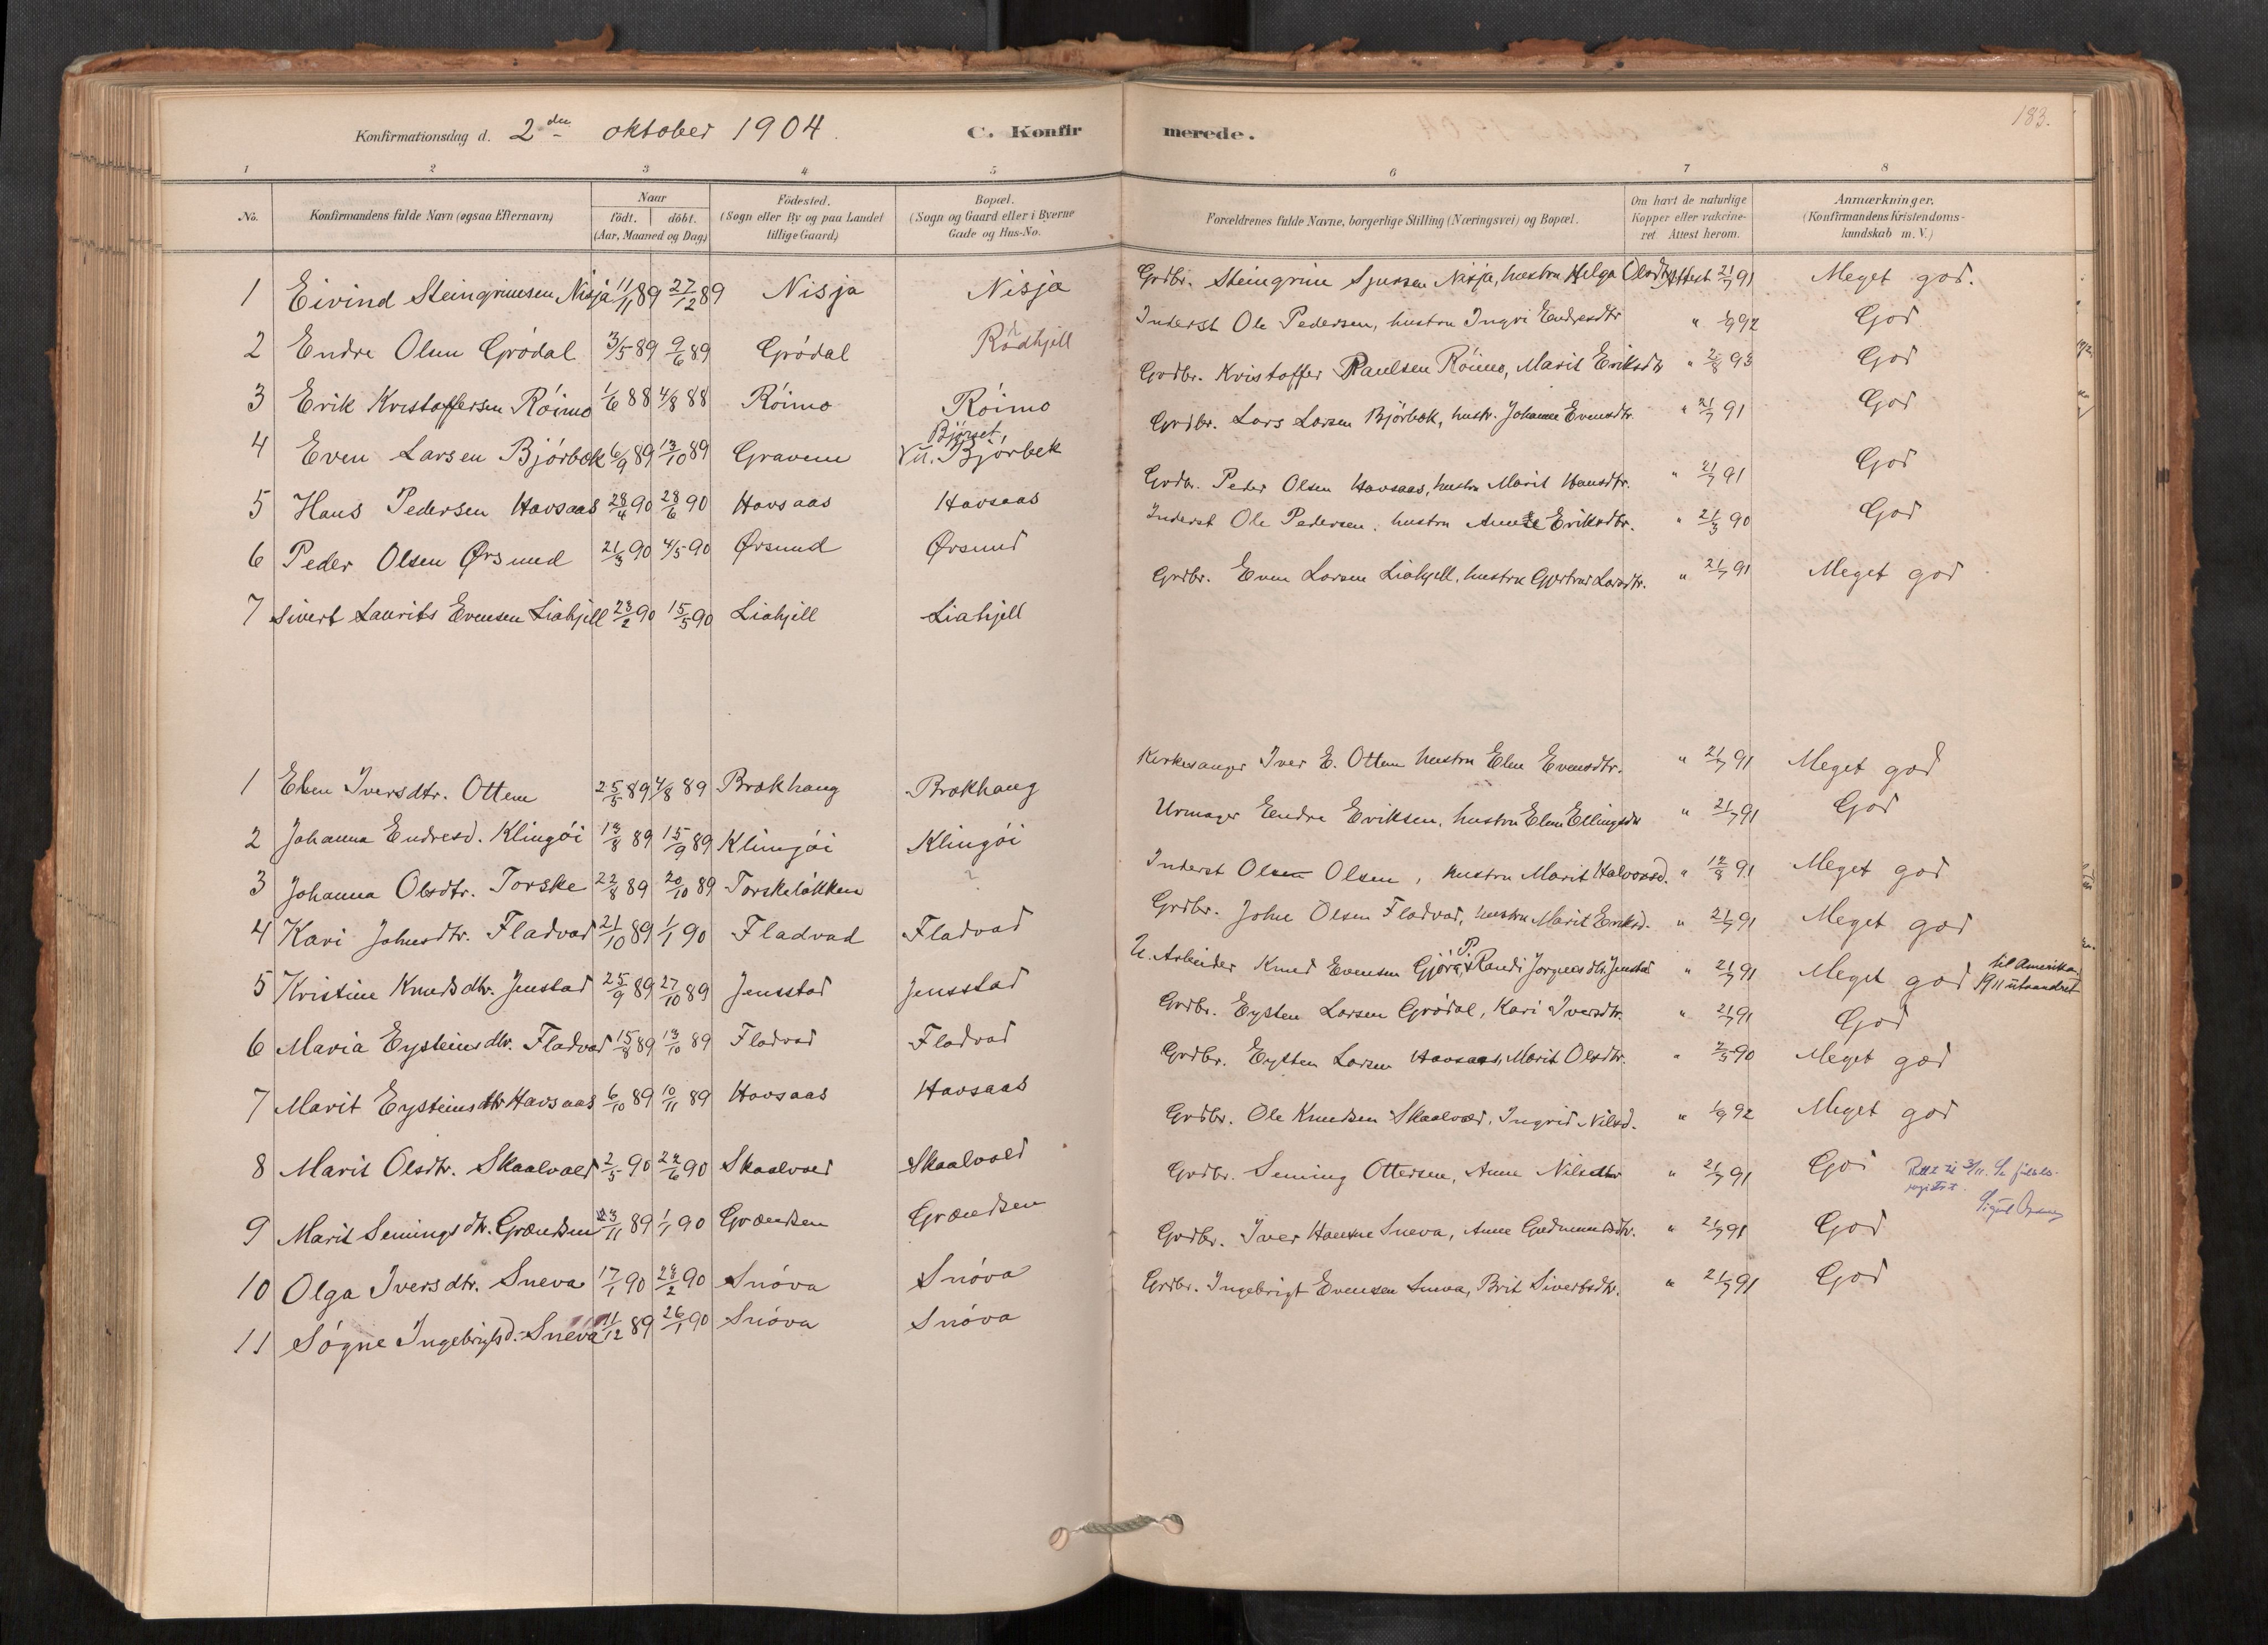 Konfirmationsdag d. 2den oktober 1904.
C. Konfirmerede.
183.
1 2 3 4 5 6 7 8
No. Konfirmandens fulde Navn (ogsaa Efternavn) Naar født. døbt. (Aar, Maaned og Dag) Fødested. (Sogn eller By og paa Landet tillige Gaard) Bopæl. (Sogn og Gaard eller i Byerne Gade og Hus-No. Forældrenes fulde Navne, borgerlige Stilling (Næringsvei) og Bopæl. Om havt de naturlige Kopper eller vakcineret. Attest herom. Anmærkninger. (Konfirmandens Kristendomskundskab m. V.)
1 Eivind Steingrimsen Nisja 11/11 89 27/12 89 Nisja Nisja Grdbr. Steingrim Sjursen Nisja, hustru Helga Olsdtr. Attest 21/7 91 Meget god.
2 Endre Olsen Grødal 3/5 89 9/6 89 Grødal Rødhjell Inderst Ole Pedersen, hustru Ingri Endresdtr " 1/9 92 God
3 Erik Kristoffersen Röimo 1/6 88 4/8 88 Röimo Röimo Grdbr. Kristoffer Paulsen Röimo, Marit Eriksdtr " 2/8 93 God
4 Even Larsen Bjørbæk 6/9 89 13/10 89 Gravem Bjørset, Bjørbek Grdbr. Lars Larsen Bjørbæk, hustr. Johanne Evensdtr. " 21/7 91 God
5 Hans Pedersen Havsaas 28/4 90 28/6 90 Havsaas Havsaas Grdbr. Peder Olsen Havsaas, hustru Marit Hansdtr. " 21/7 91 God
6 Peder Olsen Ørsund 21/3 90 4/5 90 Ørsund Ørsund Inderst Ole Pedersen, hustru Anne Eriksdtr. " 21/3 90 God
7 Sivert Laurits Evensen Liahjell 23/2 90 15/5 90 Liahjell Liahjell Grdbr. Even Larsen Liahjell, hustru Gjertrud Larsdtr. " 21/7 91 Meget god
1 Elen Iversdtr. Ottem 25/5 89 4/8 89 Brækhaug Brækhaug Kirkesanger Iver E. Ottem hustru Elen Evensdtr. " 21/7 91 Meget god
2 Johanna Endresd. Klingöi 13/8 89 15/9 89 Klingöi Klingöi Urmager Endre Eriksen, hustru Elen Ellingsdtr " 21/7 91 God
3 Johanna Olsdtr. Torske 22/8 89 20/10 89 Torskeløkken ? Inderst Olsen Olsen, hustru Marit Halvorsd. " 12/8 91 Meget god
4 Kari Johnsdtr. Fladvad 21/10 89 1/1 90 Fladvad Fladvad Grdbr. John Olsen Fladvad, hustru Marit Eriksd. " 21/7 91 Meget god
5 Kristine Knudsdtr. Jenstad 25/9 89 27/10 89 Jensstad Jensstad U. Arbeider Knud Evensen Gjöra, P. Randi Jørgensdtr. Jenstad " 21/7 91 Meget god til Amerika 1911 utvandret
6 Maria Eysteinsdtr. Fladvad 15/8 89 13/10 89 Fladvad Fladvad Grdbr. Eysten Larsen Grødal, Kari Iversdtr. " 21/7 91 God
7 Marit Eysteinsdtr Havsaas 6/10 89 10/11 89 Havsaas Havsaas Grdbr. Eysten Larsen Havsaas, Marit Olsdtr. " 2/5 90 Meget god
8 Marit Olsdtr. Skaalvold 2/5 90 22/6 90 Skaalvold Skaalvold Grdbr. Ole Knudsen Skaalvold, Ingrid Nilsd. " 1/9 92 Meget god
9 Marit Semingsdtr. Grændsen 23/11 89 1/1 90 Grændsen Grændsen Grdbr. Seming Ottersen, Anne Nilsdtr " 21/7 91 God
10 Olga Iversdtr. Sneva 17/1 90 28/2 90 Snöva Snöva Grdbr. Iver Hansen Sneva, Anne Gudmundsdtr. " 21/7 91 God
11 Søgne Ingebrigtsd. Sneva 11/12 89 26/1 90 Snöva Snöva Grdbr. Ingebrigt Evensen Sneva, Brit Sivertsdtr. " 21/7 91 God